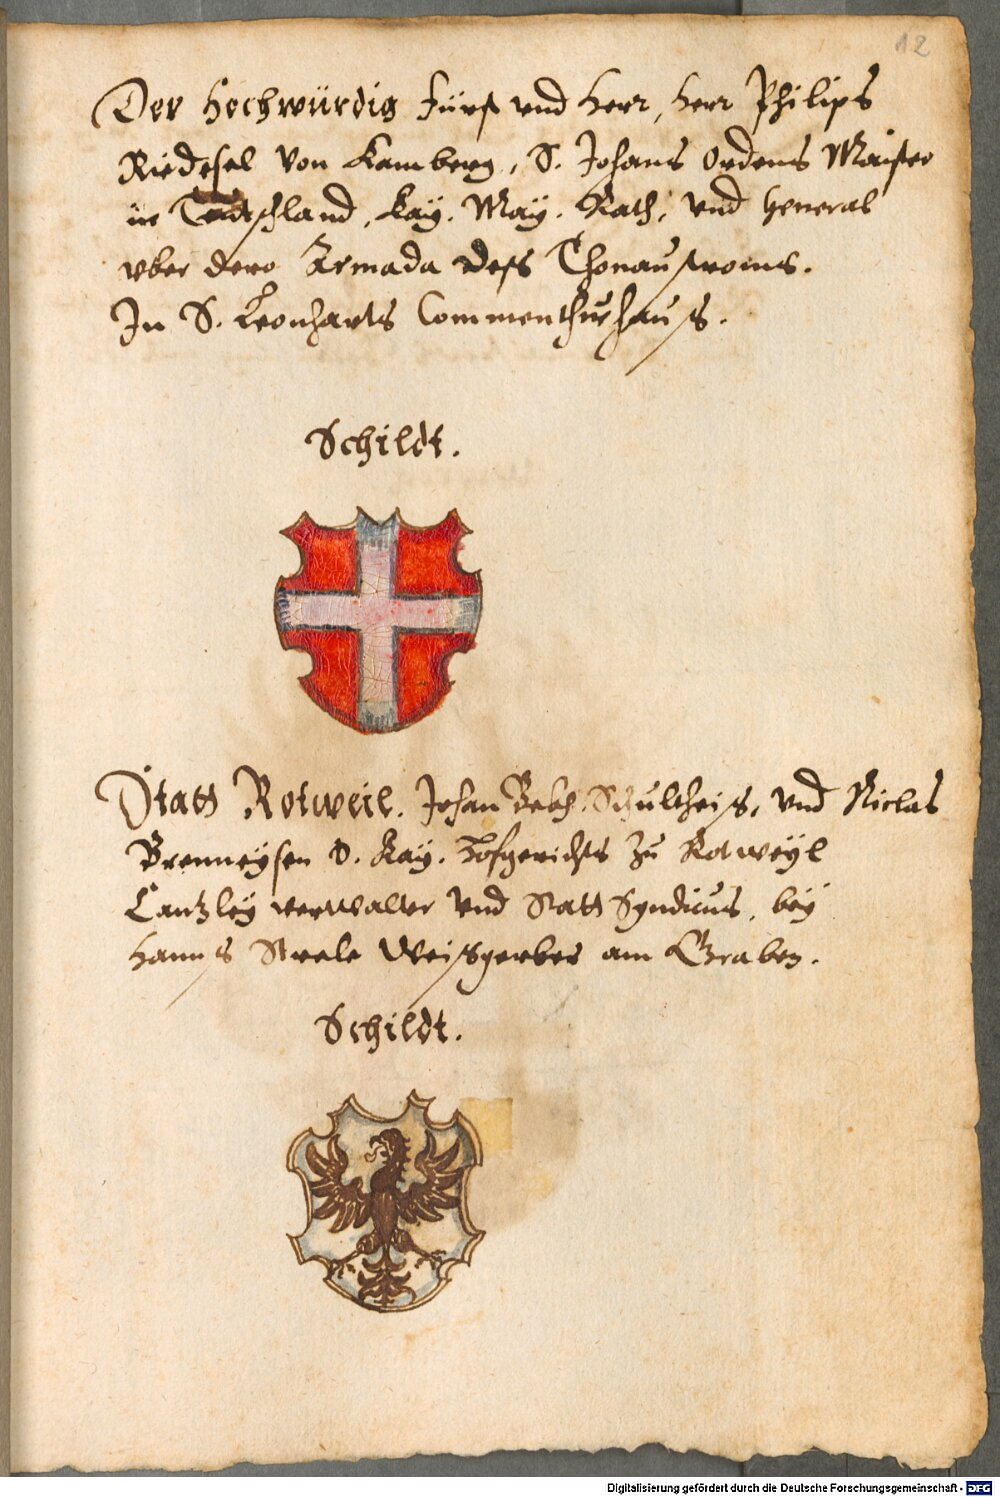 12
Der Hochwürdig Fürst vnd Herr, Herr Philips
Riedesel Von Kamberg, S. Johans Ordens Maister
in Teutschland, Kay. May. Rath, Vnd General
vber dero Armada dess Thonaustroms.
In S. Leonharts Commenthurhauss.
Schildt.
Statt Rotweil. Johan Schultheiss, Vnd Niclas
Brenneysen d. Kay. Hofgerichts Zu Rotweyl
Cantzley verwalter Vnd Statt Syndicus, bey
Hanns Weissgerber am Graben.
Schildt.
Digitalisierung gefördert durch die Deutsche Forschungsgemeinschaft - DFG